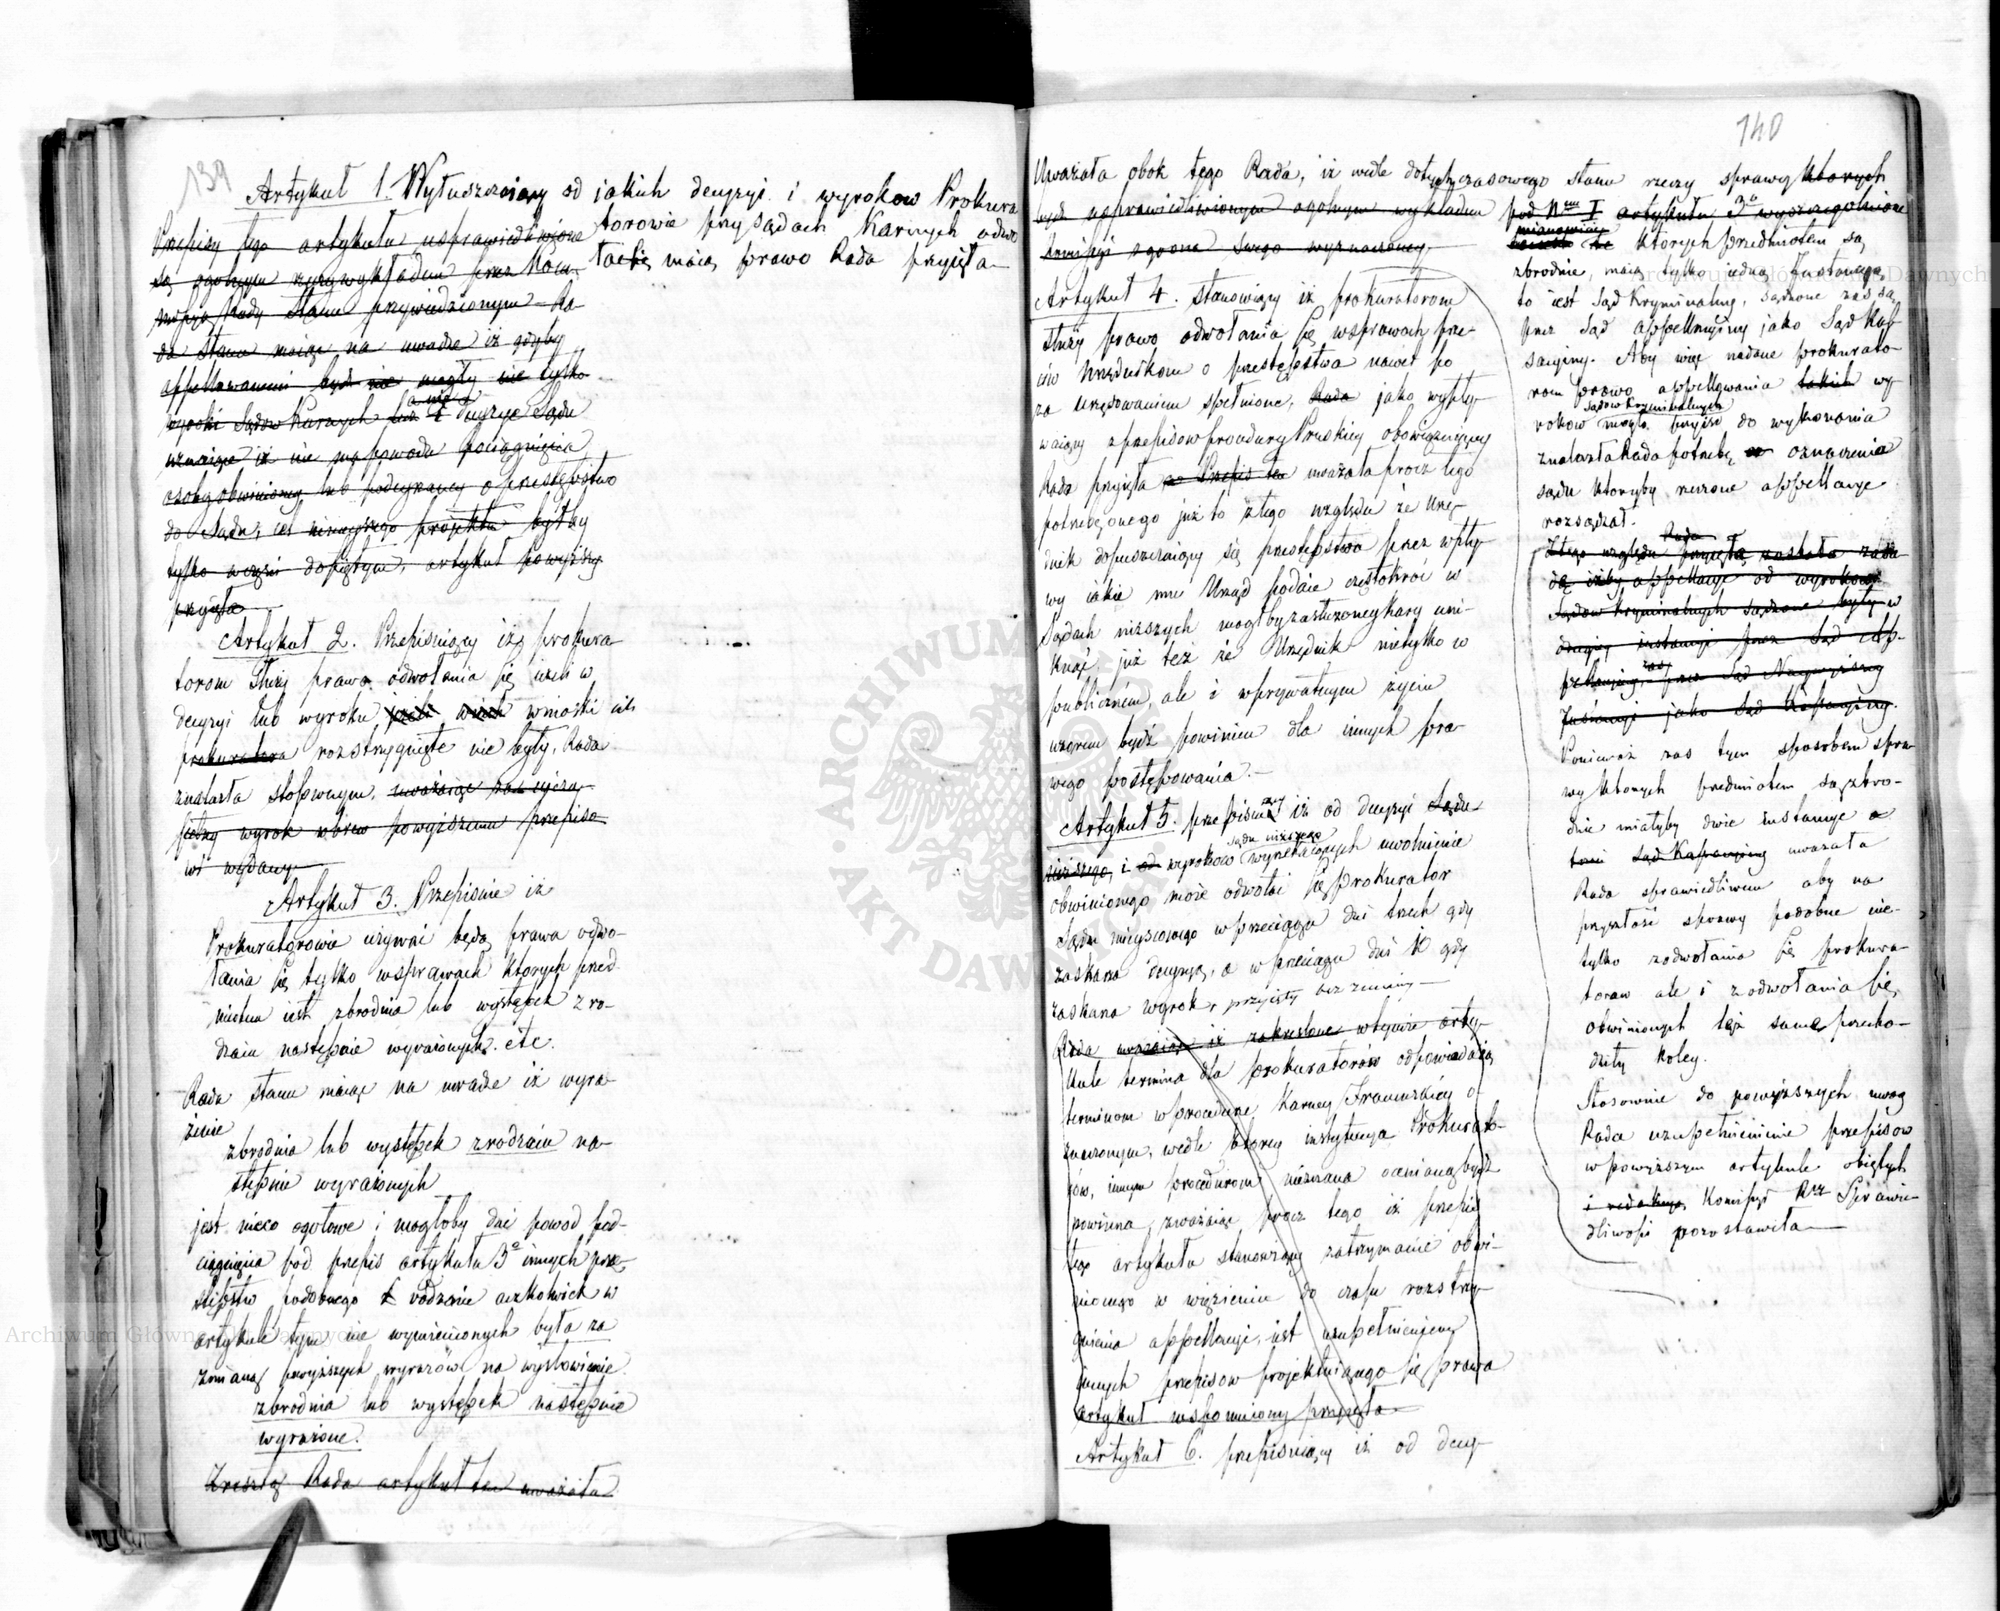 139
Artykuł 1. Wyłuszczaiący od jakich decyzyi i wyrokow Prokura
torowie przy sądach Karnych odwo
łać się maią prawo Rada przyięła
Przepisy tego artykułu usprawiedliwione
są ogolnym wykładem przez Kom
missyą Rady Stanu przywiedzionym Ra
da Stanu maiąc na uwadze iż gdyby
appellowanemi być nie mogły nie tylko
wyroki Sądow Karnych lecz i decyzye Sądu
uznaiące iż nie ma powodu pociągnięcia
osoby obwinioney lub podeyrzaney o przestępstwo
do Sądu, cel ninieyszego projektu byłby
tylko w części dopiętym, artykuł powyższy
przyięła
Artykuł 2. Przepisuiący iż prokura
torom służy prawo odwołania się ieżeli w
decyzyi lub wyroku wnioski ich
prokuratora rozstrzygnięte nie były, Rada
znalazła stosownym,
wyrok wbrew powyższemu przepiso
wi wydany
Artykuł 3. Przepisuie iż
Prokuratorowie używać będą prawa odwo-
łania się tylko w sprawach ktorych przed
miotem iest zbrodnia lub występek z ro-
dzaiu następnie wyrażonych. etc.
Rada stanu maiąc na uwadze iż wyra
żenie
zbrodnia lub występek z rodzaiu na-
stępnie wyrażonych
jest nieco ogołowe i mogłoby dać powod pod-
ciągnięcia pod przepis artykułu 3° innych prze-
stępstw podobnego rodzaiu aczkolwiek w
artykule tym nie wymienionych była za
zmianą powyższych wyrazów na wysłowienie
zbrodnia lub występek następnie
wyrażone.
Zresztą Rada artykuł ten uważała
140
Uważała obok tego Rada, iż wedle dotychczasowego stanu rzeczy sprawy ktorych
być usprawiedliwionym ogolnym wykładem
kmissyi zgona swego wyznaczoney
pod Nrem I artykułu 3° wyszczegolnione
mianowicie
ktorych przedmiotem są
zbrodnie, maią tylko jedną Instancyą
to iest Sąd Kryminalny, sądzone zaś są
przez Sąd appellacyiny jako Sąd Kas-
sacyiny. Aby więc nadane prokurato-
rom prawo appellowania takich wy
sądow Kryminalnych
rokow mogło przyiść do wykonania
znalazła Rada potrzebę oznaczenia
sądu ktoryby rzeczone appellacye
rozsądzał.
Rada
Z tego względu przyiętą została zasa-
da iżby appellacye od wyrokow
Sądow Kryminalnych sądzone były w
drugiey instancyi przez Sąd Ap-
pellacyiny, zaś przez Sąd Naywyższey
Instancyi jako Sąd Kassacyiny.
Ponieważ zas tym sposobem spra-
wy ktorych przedmiotem są zbro-
dnie miałyby dwie instancye a
Sąd Kassacyiny uważała
Rada sprawiedliwem aby na
przyszłość sprawy podobne nie-
tylko z odwołania się prokura-
torow ale i z odwołania się
obwinionych tąż samą przecho-
dziły koley.
Stosownie do powyższych uwag
Rada uzupełnienie przepisow
w powyższym artykule obiętych
i redakcyą Komissyi Rzą Sprawie-
dliwości pozostawiła
Artykuł 4. Stanowiący iż prokuratorom
służy prawo odwołania się w sprawach prze-
ciw Urzędnikom o przestępstwa nawet po
za urzędowaniem spełnione, Rada jako wypły-
waiący z przepisow procedury Pruskiey obowiązuiącey
Rada przyięła Przepis ten uważała procz tego
potrzebą onego już to z tego względu że Urzę-
dnik dopuszczaiący się przestępstwa przez wpły-
wy jakie mu Urząd podaie częstokroć w
Sądach niższych mogłby zasłużoney kary uni-
knąć już też że Urzędnik nietylko w
publicznem, ale i w prywatnym życiu
wzorem być powinien dla innych pra-
wego postępowania.
Artykuł 5. przepisuiący iż od decyzyi Sądu
sądu niższego
niższego, i od wyrokow wyrzekaiących uwolnienie
obwinionego może odwołać się prokurator
Sądu mieyscowego w przeciągu dni trzech gdy
zaskarża decyzyą, a w przeciągu dni 10 gdy
zaskarża wyrok, przyięty bez zmiany
Rada uważaiąc iż zakreślone w tymże arty-
kule termina dla prokuratorów odpowiadaią
terminom w procedurze Karney Francuskiey o-
znaczonym, wedle ktorey instytucya Prokurato-
rów, innym procedurom nieznana ocenianą być
powinna, zważaiąc procz tego iż przepis
tego artykułu stanowiący zatrzymanie obwi-
nionego w więzieniu do czasu rozstrzy-
gnienia appellacyi, iest uzupełnieniem
innych przepisow projektuiącego się prawa
artykuł wspomniony przyięła
Artykuł 6. przepisuiący iż od decy-